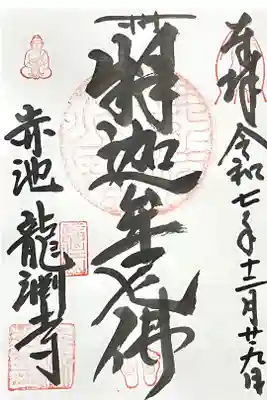 奉拝 令和七年十二月廿九日
釋迦牟尼佛
赤池 龍渕寺